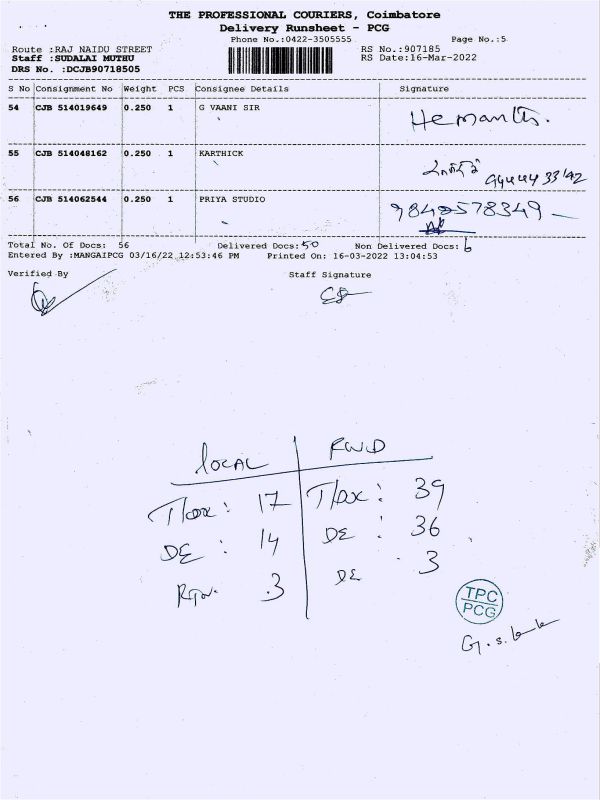 THE PROFESSIONAL COURIERS, Coimbatore
Delivery Runsheet - PCG
Phone No.:0422-3505555 Page No.:5
Route :RAJ NAIDU STREET RS No.:907185
Staff :SUDALAI MUTHU RS Date:16-Mar-2022
DRS No. :DCJB90718505
S No Consignment No Weight PCS Consignee Details Signature
54 CJB 514019649 0.250 1 G VAANI SIR Hemanth.
55 CJB 514048162 0.250 1 KARTHICK
56 CJB 514062544 0.250 1 PRIYA STUDIO 9840578349
Total No. Of Docs: 56 Delivered Docs: 50 Non Delivered Docs: 6
Entered By :MANGAIPCG 03/16/22 12:53:46 PM Printed On: 16-03-2022 13:04:53
Verified By Staff Signature
LOCAL
17 39
DE : 14 DE : 36
Rtn. 3 DE 3
TPC
PCG